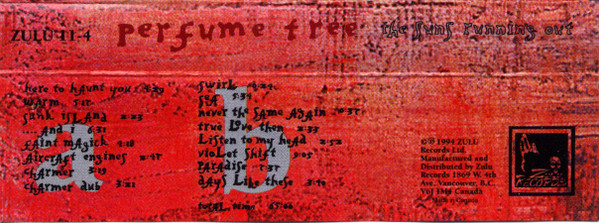 ZULU 11-4
perfume tree
the suns running out
here to haunt you
warm, sir
sunk island 0:23
...and I 6:31
faint magick 4:18
Aircraft engines 2:47
charmer 3:19
charmer dub 3:21
swirl
sea 5:39
never the same again
true love then 2:33
Listen to my head 2:52
violet shift
paradise
days like these 3:40
total time
©℗ 1994 ZULU
Records Ltd.
Manufactured and
Distributed by Zulu
Records 1869 W. 4th
Ave. Vancouver, B.C.
V6J 1M4 Canada
Made in Canada